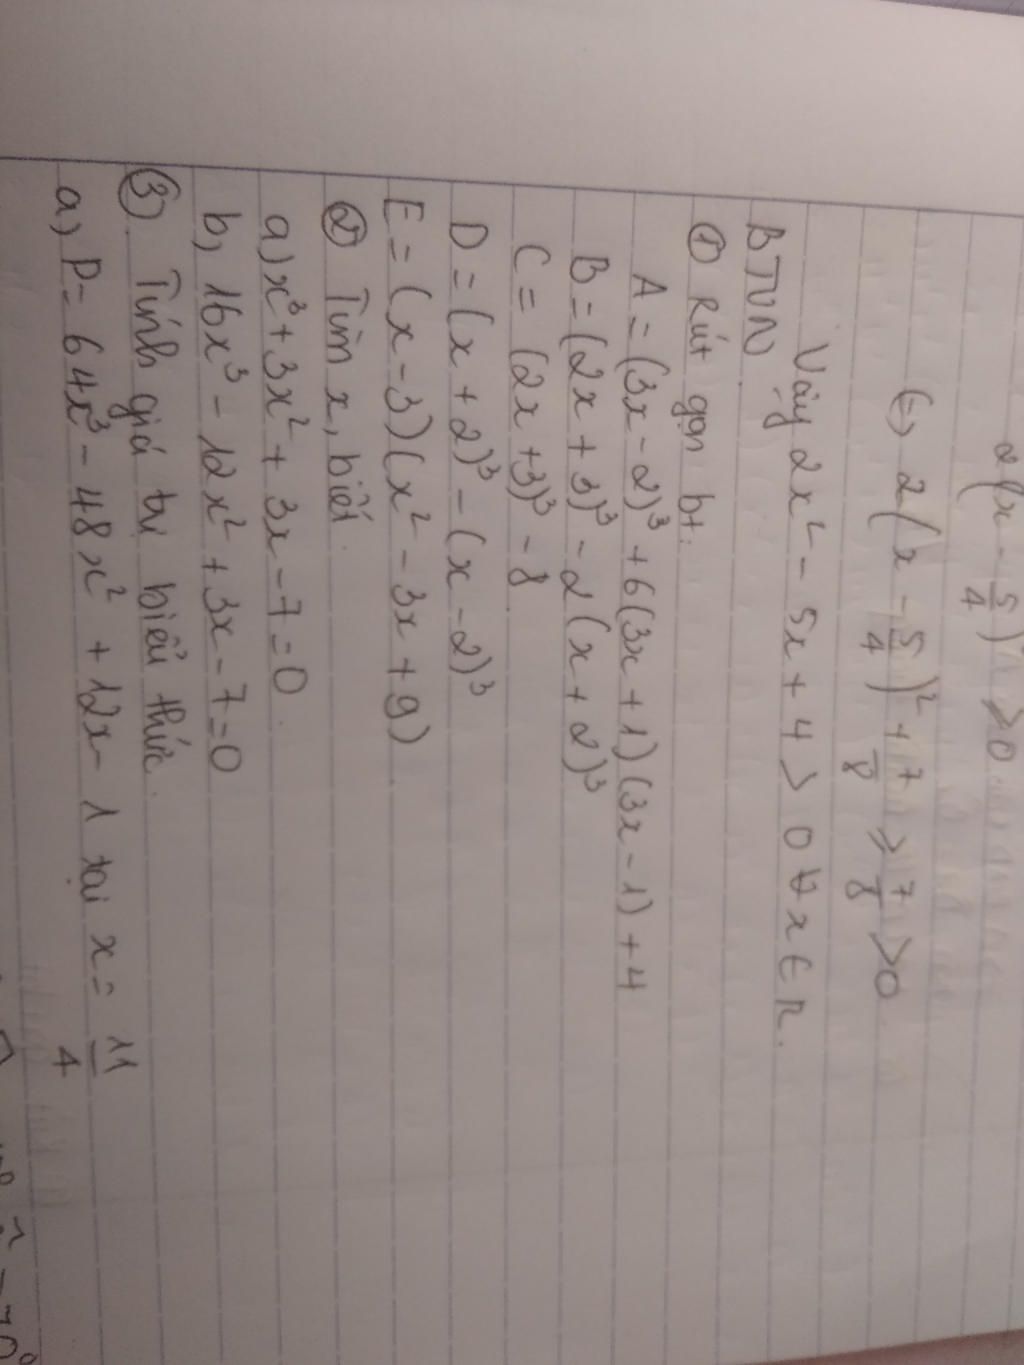 2(x - 5/4)² ≥ 0
2(x - 5/4)² + 7/8 ≥ 7/8 > 0
Vậy 2x² - 5x + 4 > 0 ∀ x ∈ R.
BTVN
① Rút gọn bt.
A = (3x - 2)³ + 6(3x + 1)(3x - 1) + 4
B = (2x + 3)³ - 2(x + 2)³
C = (2x + 3)³ - 8
D = (x + 2)³ - (x - 2)³
E = (x - 3)(x² - 3x + 9)
② Tìm x, biết
a) x³ + 3x² + 3x - 7 = 0.
b) 16x³ - 12x² + 3x - 7 = 0
③ Tính giá trị biểu thức.
a) P = 64x³ - 48x² + 12x - 1 tại x = 11/4